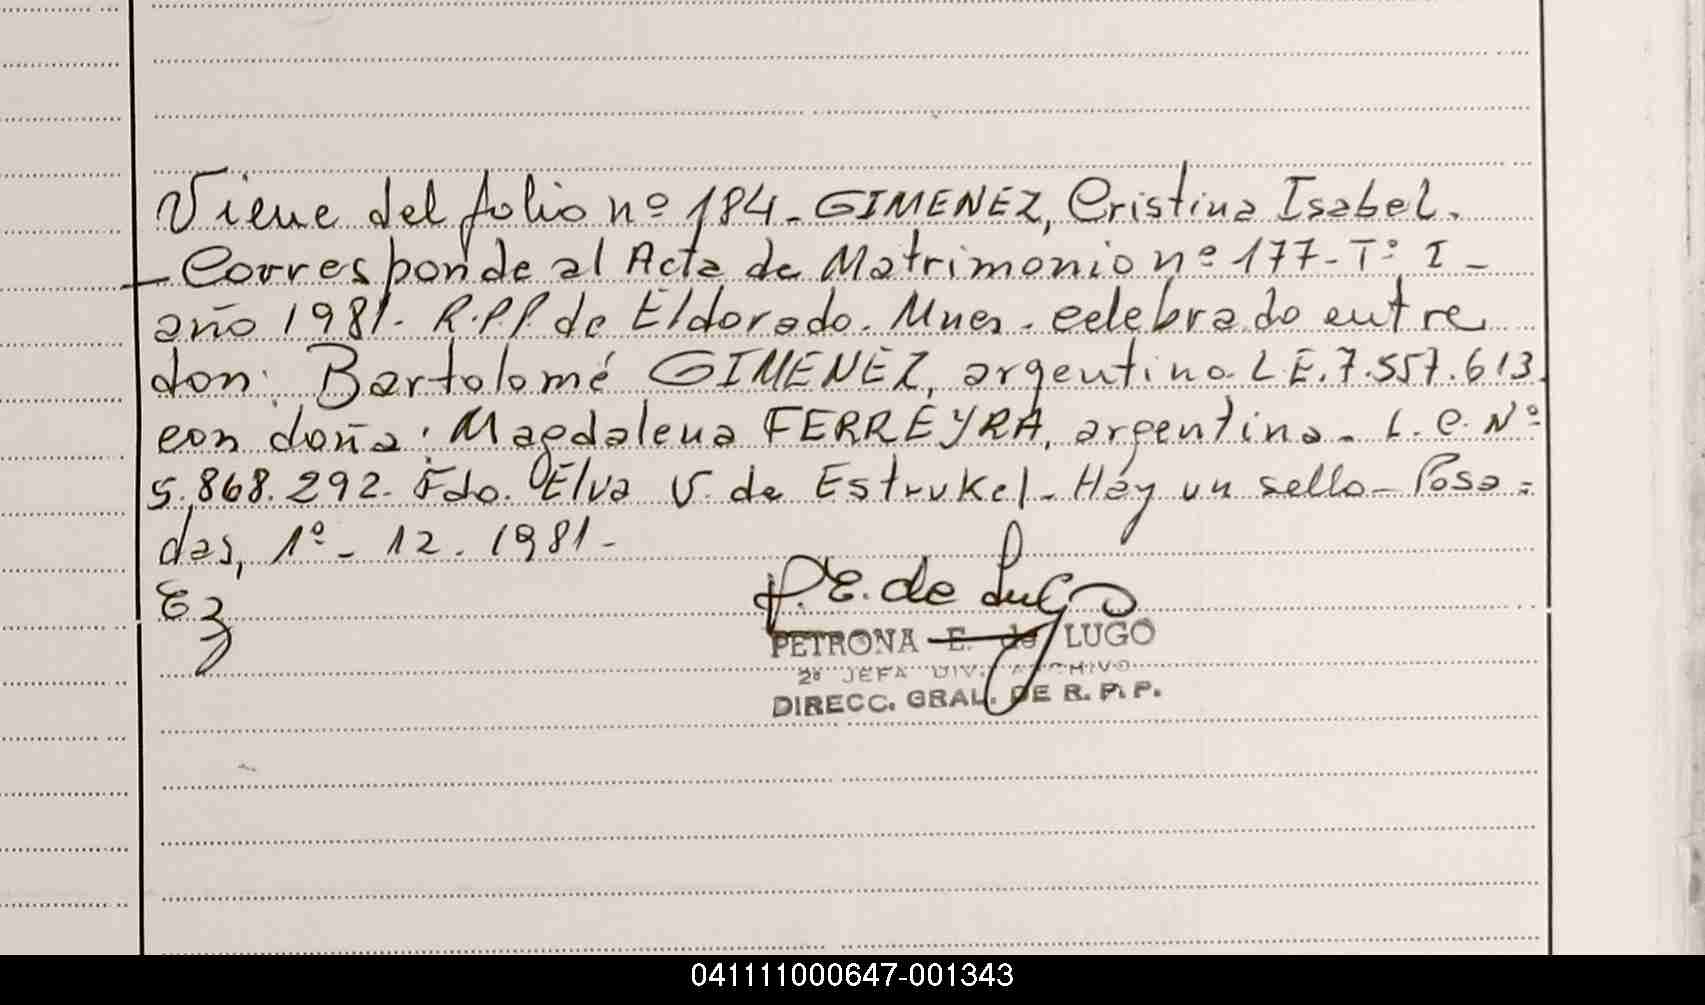 Viene del folio nº 184- GIMENEZ, Cristina Isabel.
- Corresponde al Acta de Matrimonio nº 177- Tº I -
año 1981- R.P.P. de Eldorado. Mnes. celebrado entre
don: Bartolomé GIMENEZ, argentino. L E. 7.557.613.
con doña: Magdalena FERREYRA, argentina- L. C. Nº
5.868.292. Fdo. Elva V. de Estrukel- Hay un sello- Posa=
das, 1º- 12. 1981-
P.E. de Lugo
PETRONA E. de LUGO
2º JEFA DIV. ARCHIVO
DIRECC. GRAL. DE R. P. P.
041111000647-001343